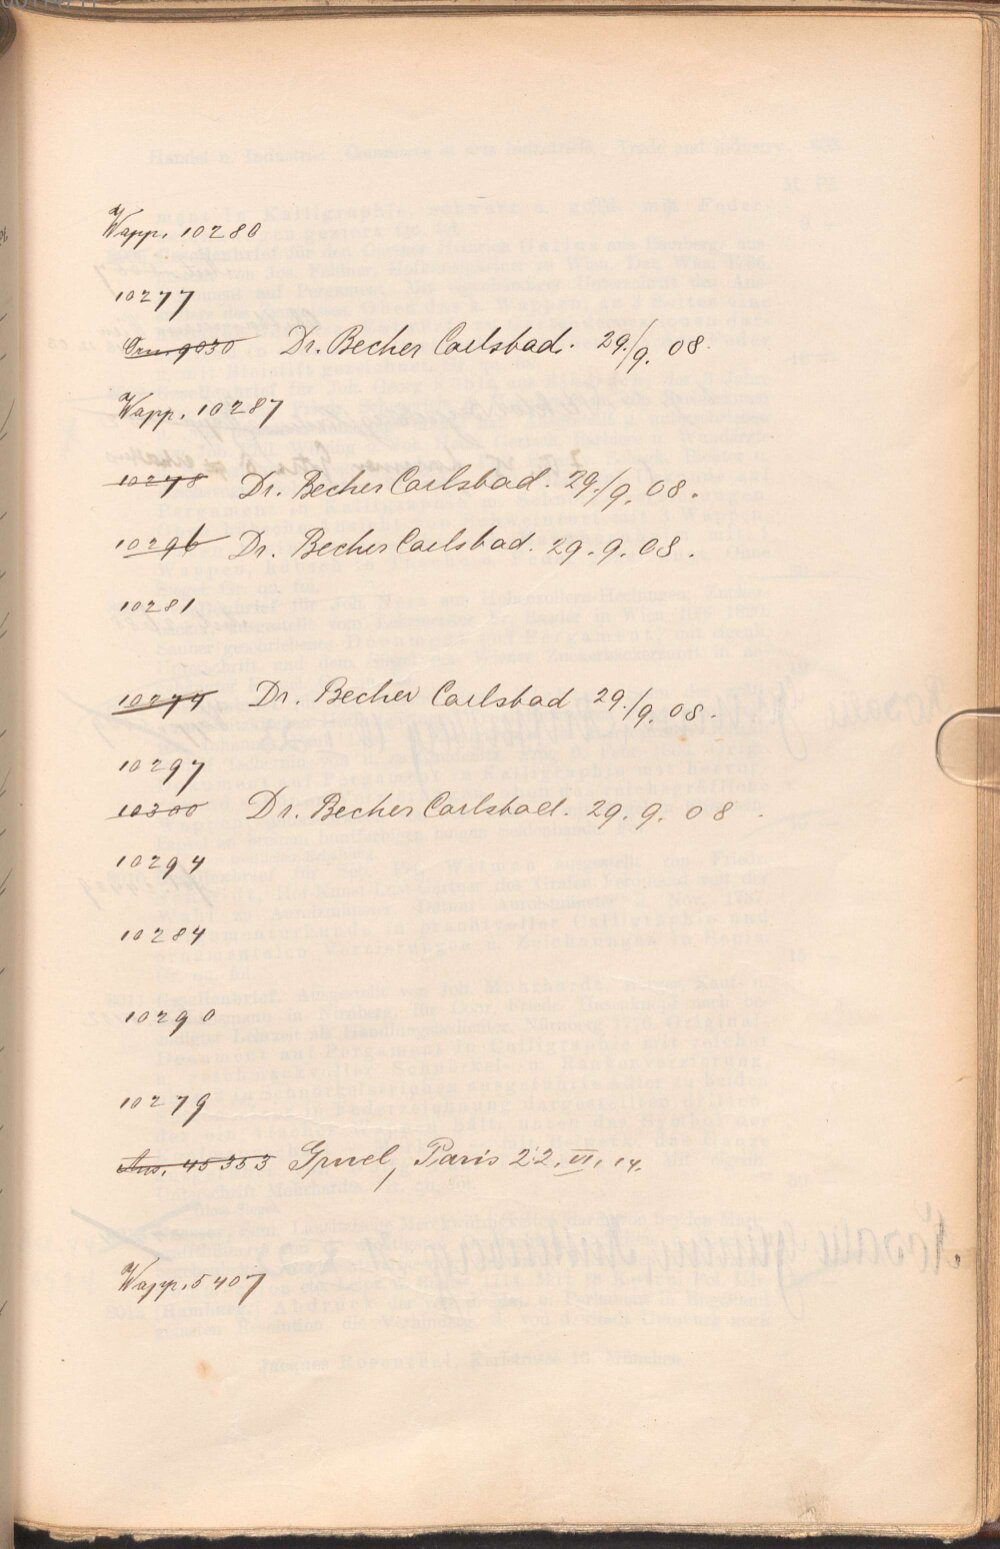 Wapp. 10280
10277
Orn. 9030 Dr. Becher Carlsbad. 29./9. 08.
Wapp. 10287
10278 Dr. Becher Carlsbad. 29./9. 08.
10296 Dr. Becher Carlsbad. 29. 9. 08.
10281
10274 Dr. Becher Carlsbad 29./9. 08.
10297
10300 Dr. Becher Carlsbad. 29. 9. 08.
10294
10284
10290
10279
45353 Gruel, Paris 22. VI. 14.
Wapp. 5407